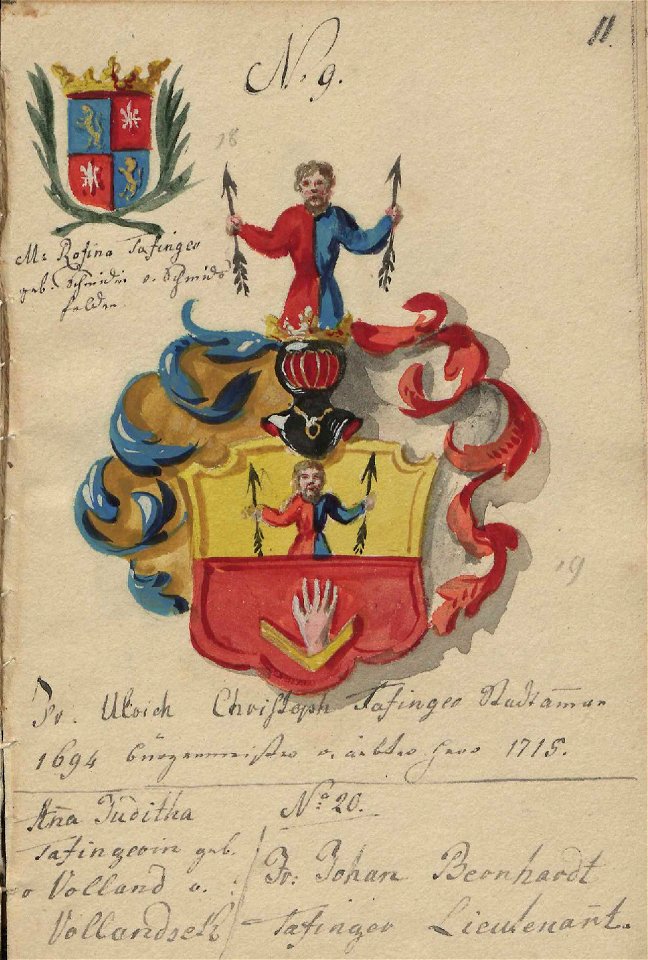 11.
N. 9.
18
M: Rosina Tafinger
geb. Schmidin v. Schmids
felden.
19
Hr. Ulrich Christoph Tafinger Stadtamman
1694 burgermeister 1715.
Aña Juditha
Tafingerin geb.
v Volland v.
Vollandseck
No 20.
Hr: Johan Bernhardt
Tafinger Lieutenant.